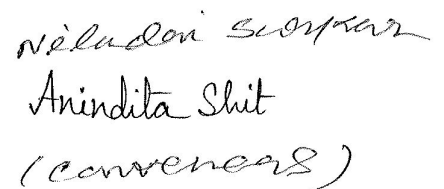 Niladri Sarkar
Anindita Shit
(convenears)